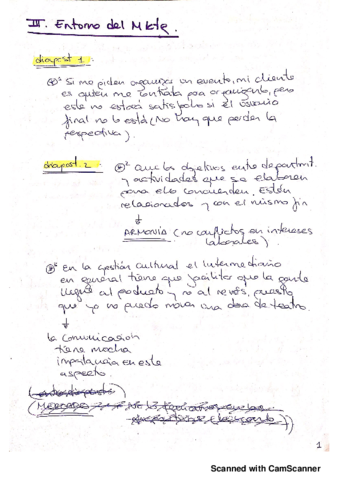 III. Entorno del Mkte.
diapost 1:
①° Si me piden organizar un evento, mi cliente
es quien me contrata para organizarlo, pero
este no estará satisfecho si el usuario
final no lo está (No hay que perder la
perspectiva).
diapost. 2
②° Que los objetivos entre departmt.
y actividades que se elaboren
para ello concuerden. Estén
relacionados y con el mismo fin
↓
ARMONÍA (no conflictos en intereses
laborales)
En la gestión cultural el Intermediario
en general tiene que facilitar que la gente
llegue al producto y no al revés, puesto
que yo no puedo mover una obra de teatro.
↓
la comunicación
tiene mucha
importancia en este
aspecto.
1
Scanned with CamScanner